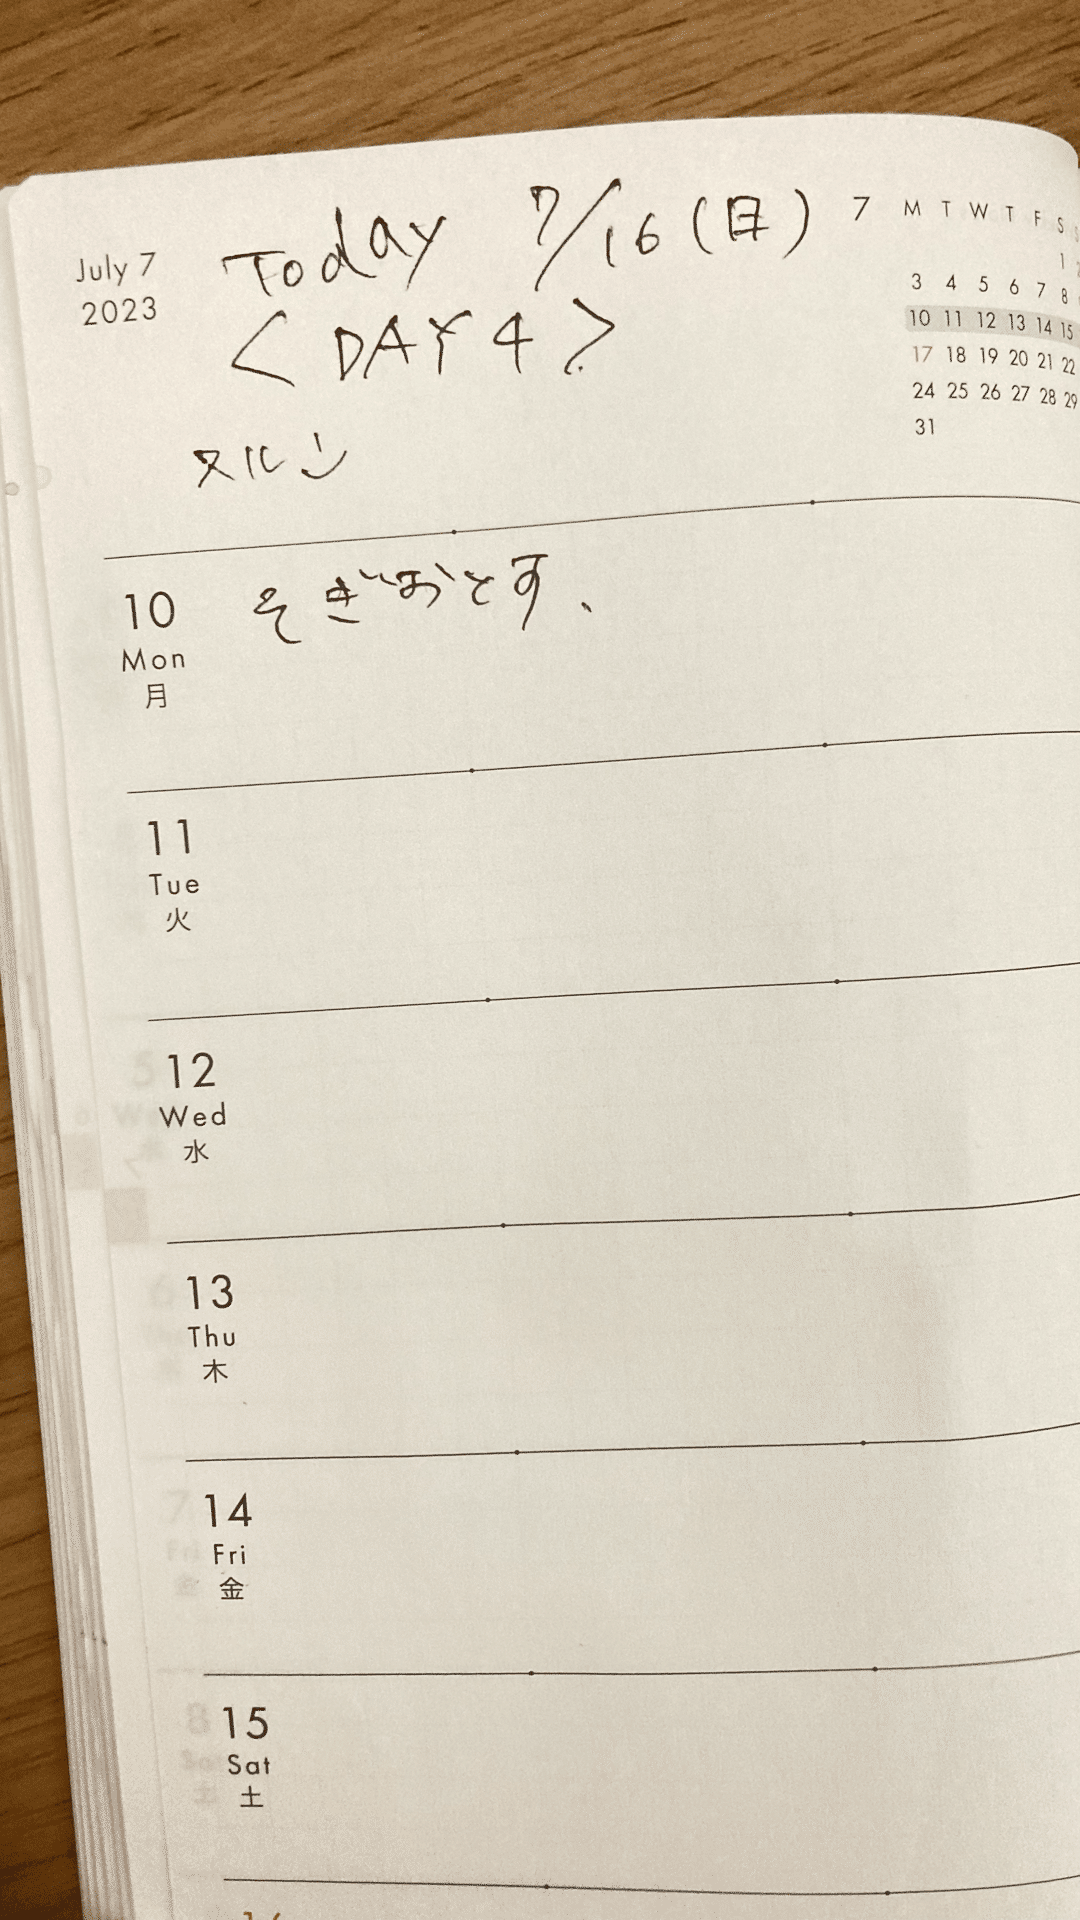 July 7
2023
Today 7/16(日)
<DAY4>
ヌルン
そぎおとす、
7
M T W T F S
1
3 4 5 6 7 8
10 11 12 13 14 15
17 18 19 20 21 22
24 25 26 27 28 29
31
10
Mon
月
11
Tue
火
12
Wed
水
13
Thu
木
14
Fri
金
15
Sat
土